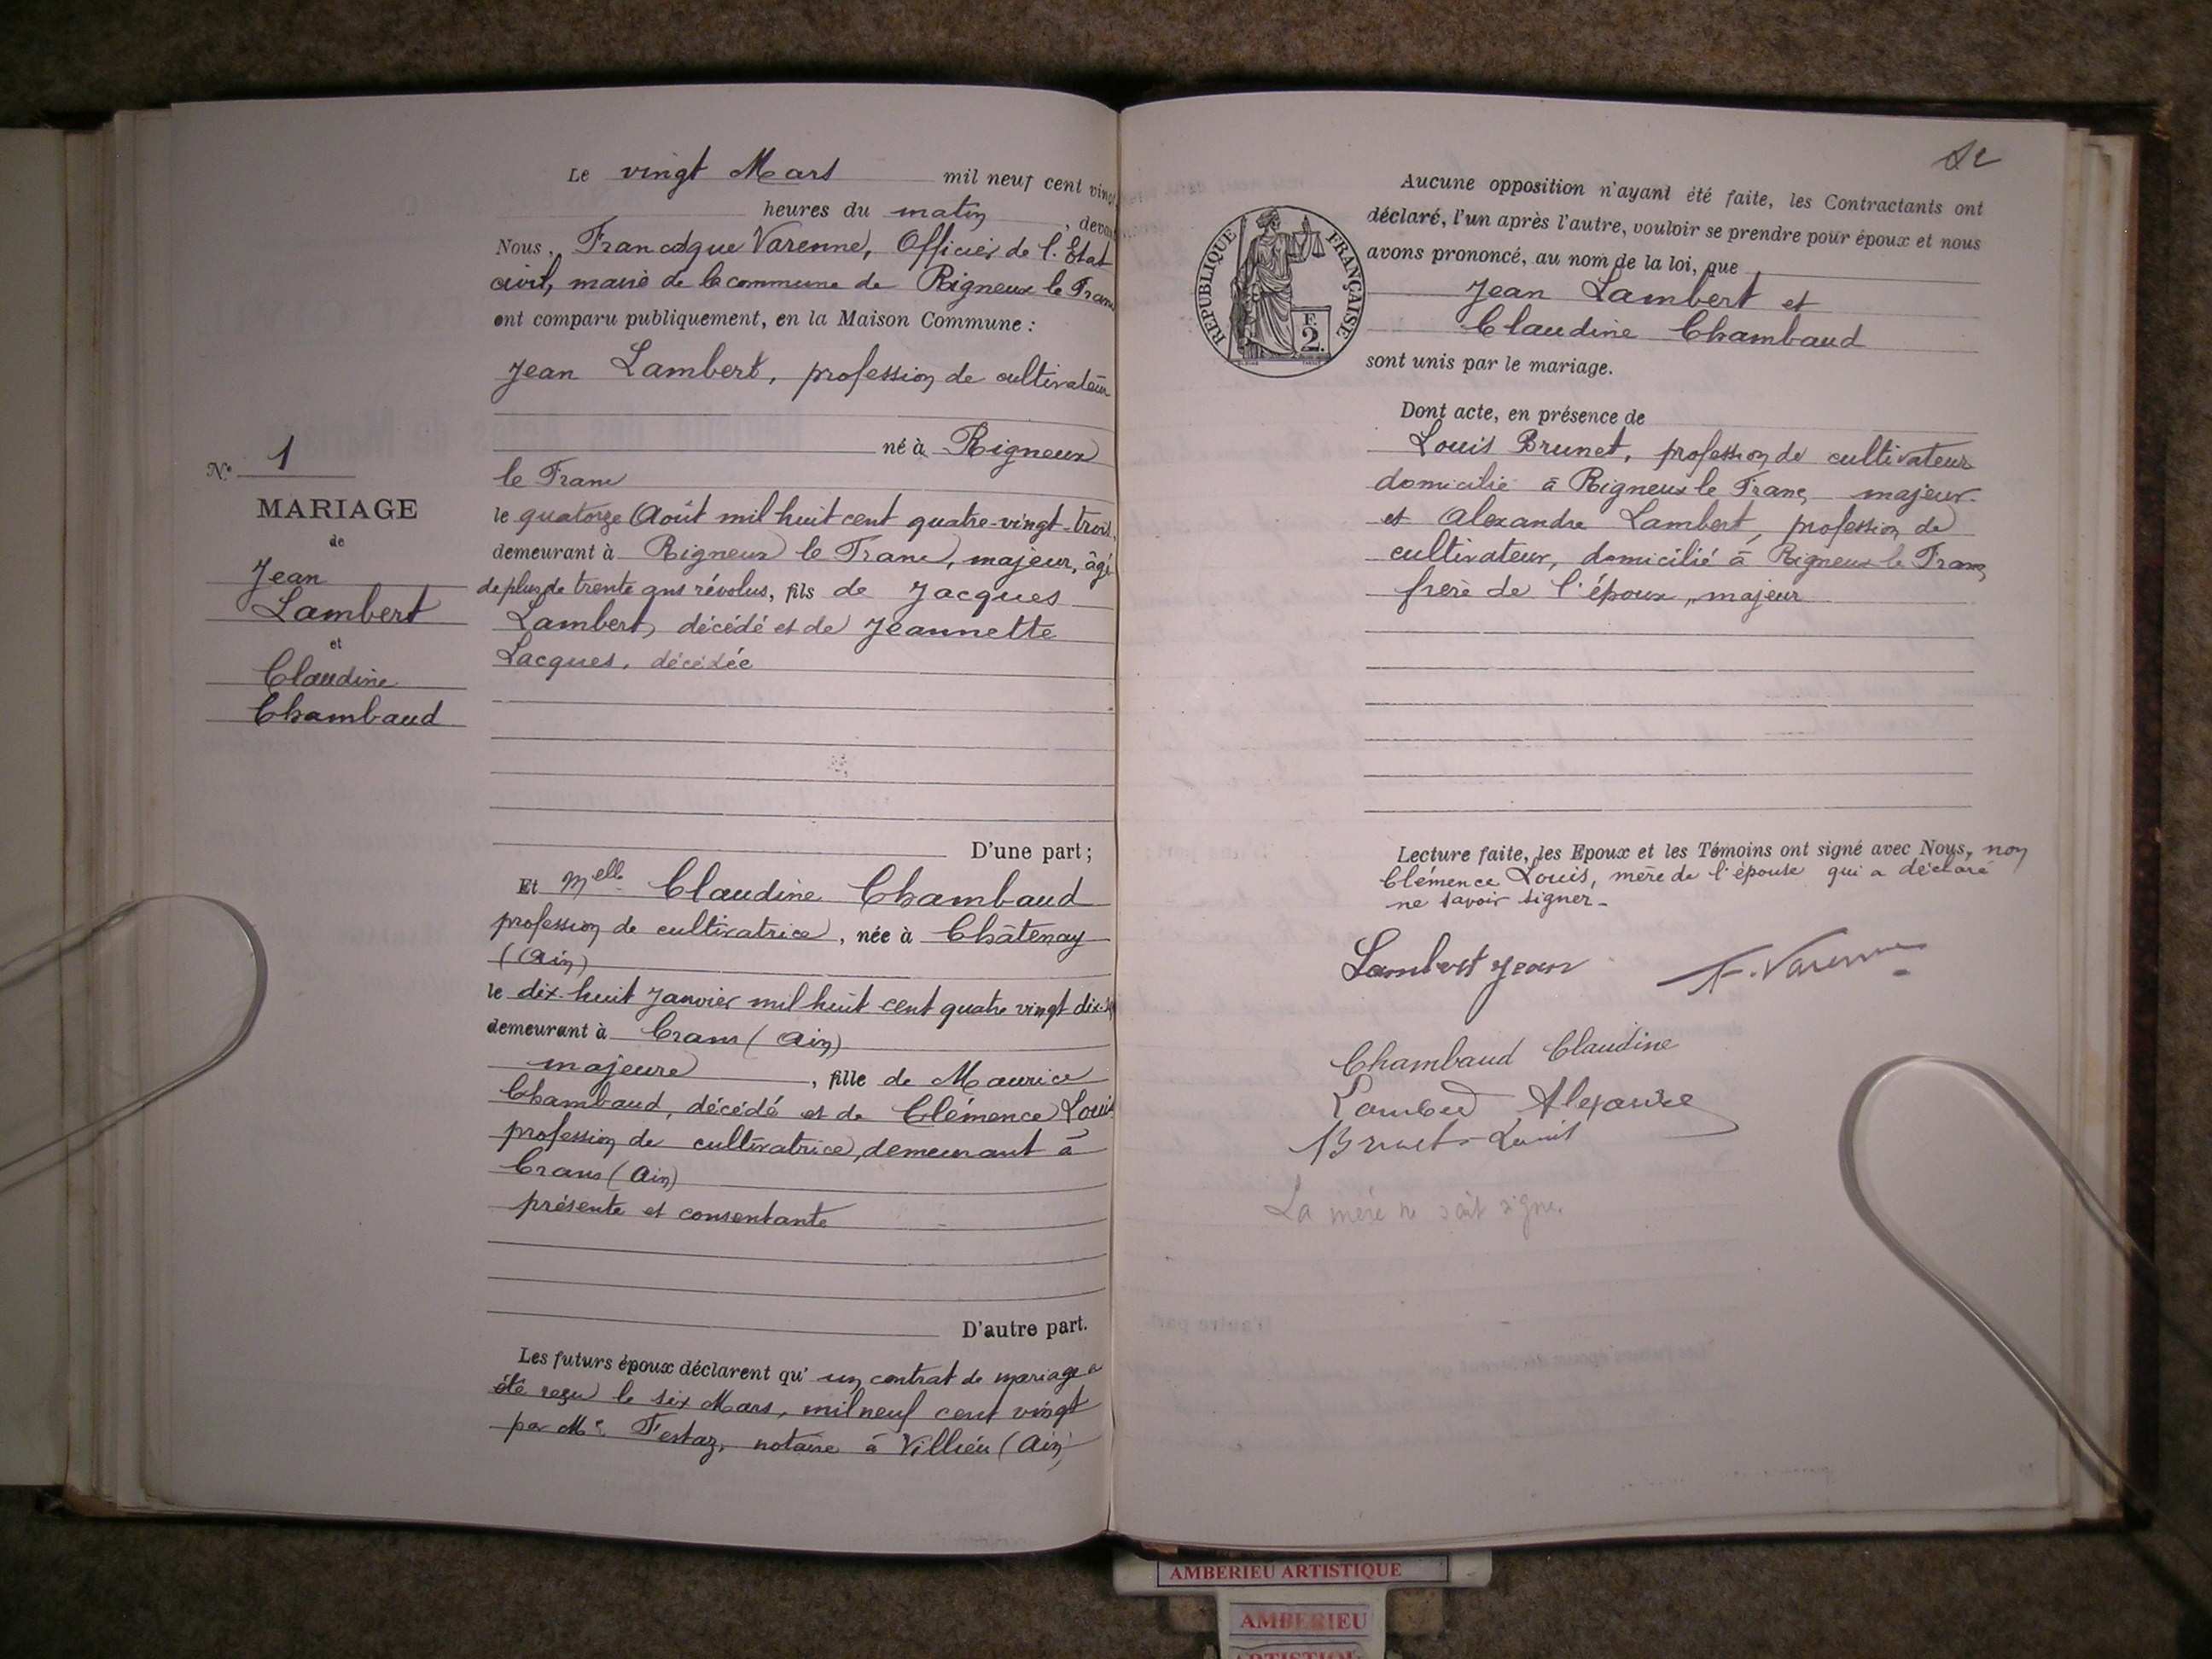 Le vingt Mars mil neuf cent vingt
heures du matin, devant
Nous, Francisque Varenne, Officier de l'Etat
civil, maire de la commune de Rigneux le Franc
ont comparu publiquement, en la Maison Commune :
Jean Lambert, profession de cultivateur
né à Rigneux
le Franc
le quatorze Août mil huit cent quatre-vingt-trois,
demeurant à Rigneux le Franc, majeur, âgé
de plus de trente ans révolus, fils de Jacques
Lambert, décédé et de Jeannette
Lacques, décédée
D'une part ;
N° 1
MARIAGE
de
Jean
Lambert
et
Claudine
Chambaud
Et Melle Claudine Chambaud
profession de cultivatrice, née à Châtenay
(Ain)
le dix-huit Janvier mil huit cent quatre vingt
demeurant à Crans (Ain)
majeure, fille de Maurice
Chambaud, décédé et de Clémence Louis
profession de cultivatrice, demeurant à
Crans (Ain)
présente et consentante
D'autre part.
Les futurs époux déclarent qu'un contrat de mariage a
été reçu le six Mars, mil neuf cent vingt
par Me Festaz, notaire à Villieu (Ain)
Aucune opposition n'ayant été faite, les Contractants ont
déclaré, l'un après l'autre, vouloir se prendre pour époux et nous
avons prononcé, au nom de la loi, que
Jean Lambert et
Claudine Chambaud
sont unis par le mariage.
RÉPUBLIQUE FRANÇAISE
F.
2.
Dont acte, en présence de
Louis Brunet, profession de cultivateur
domicilié à Rigneux le Franc, majeur
et Alexandre Lambert, profession de
cultivateur, domicilié à Rigneux le Franc,
frère de l'époux, majeur
Lecture faite, les Epoux et les Témoins ont signé avec Nous, non
Clémence Louis, mère de l'épouse qui a déclaré
ne savoir signer-
Lambert Jean
F. Varenne
Chambaud Claudine
Lambert Alexandre
Brunet Louis
La mère ne sait signer.
AMBERIEU ARTISTIQUE
AMBERIEU
ARTISTIQUE